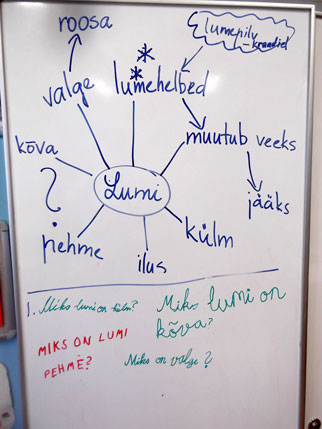 roosa
lumepilv
-kraadid
valge
lumehelbed
kõva
muutub veeks
?
Lumi
jääks
pehme
külm
ilus
1. Miks lumi on külm?
Miks lumi on
kõva?
MIKS ON LUMI
PEHME?
Miks on valge?